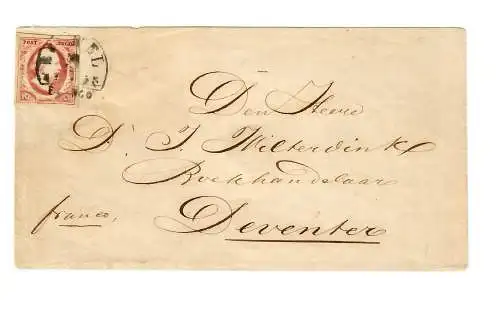 POST ZEGEL
Den Heere
D. J. Wilterdink
Boekhandelaar
franco,
Deventer